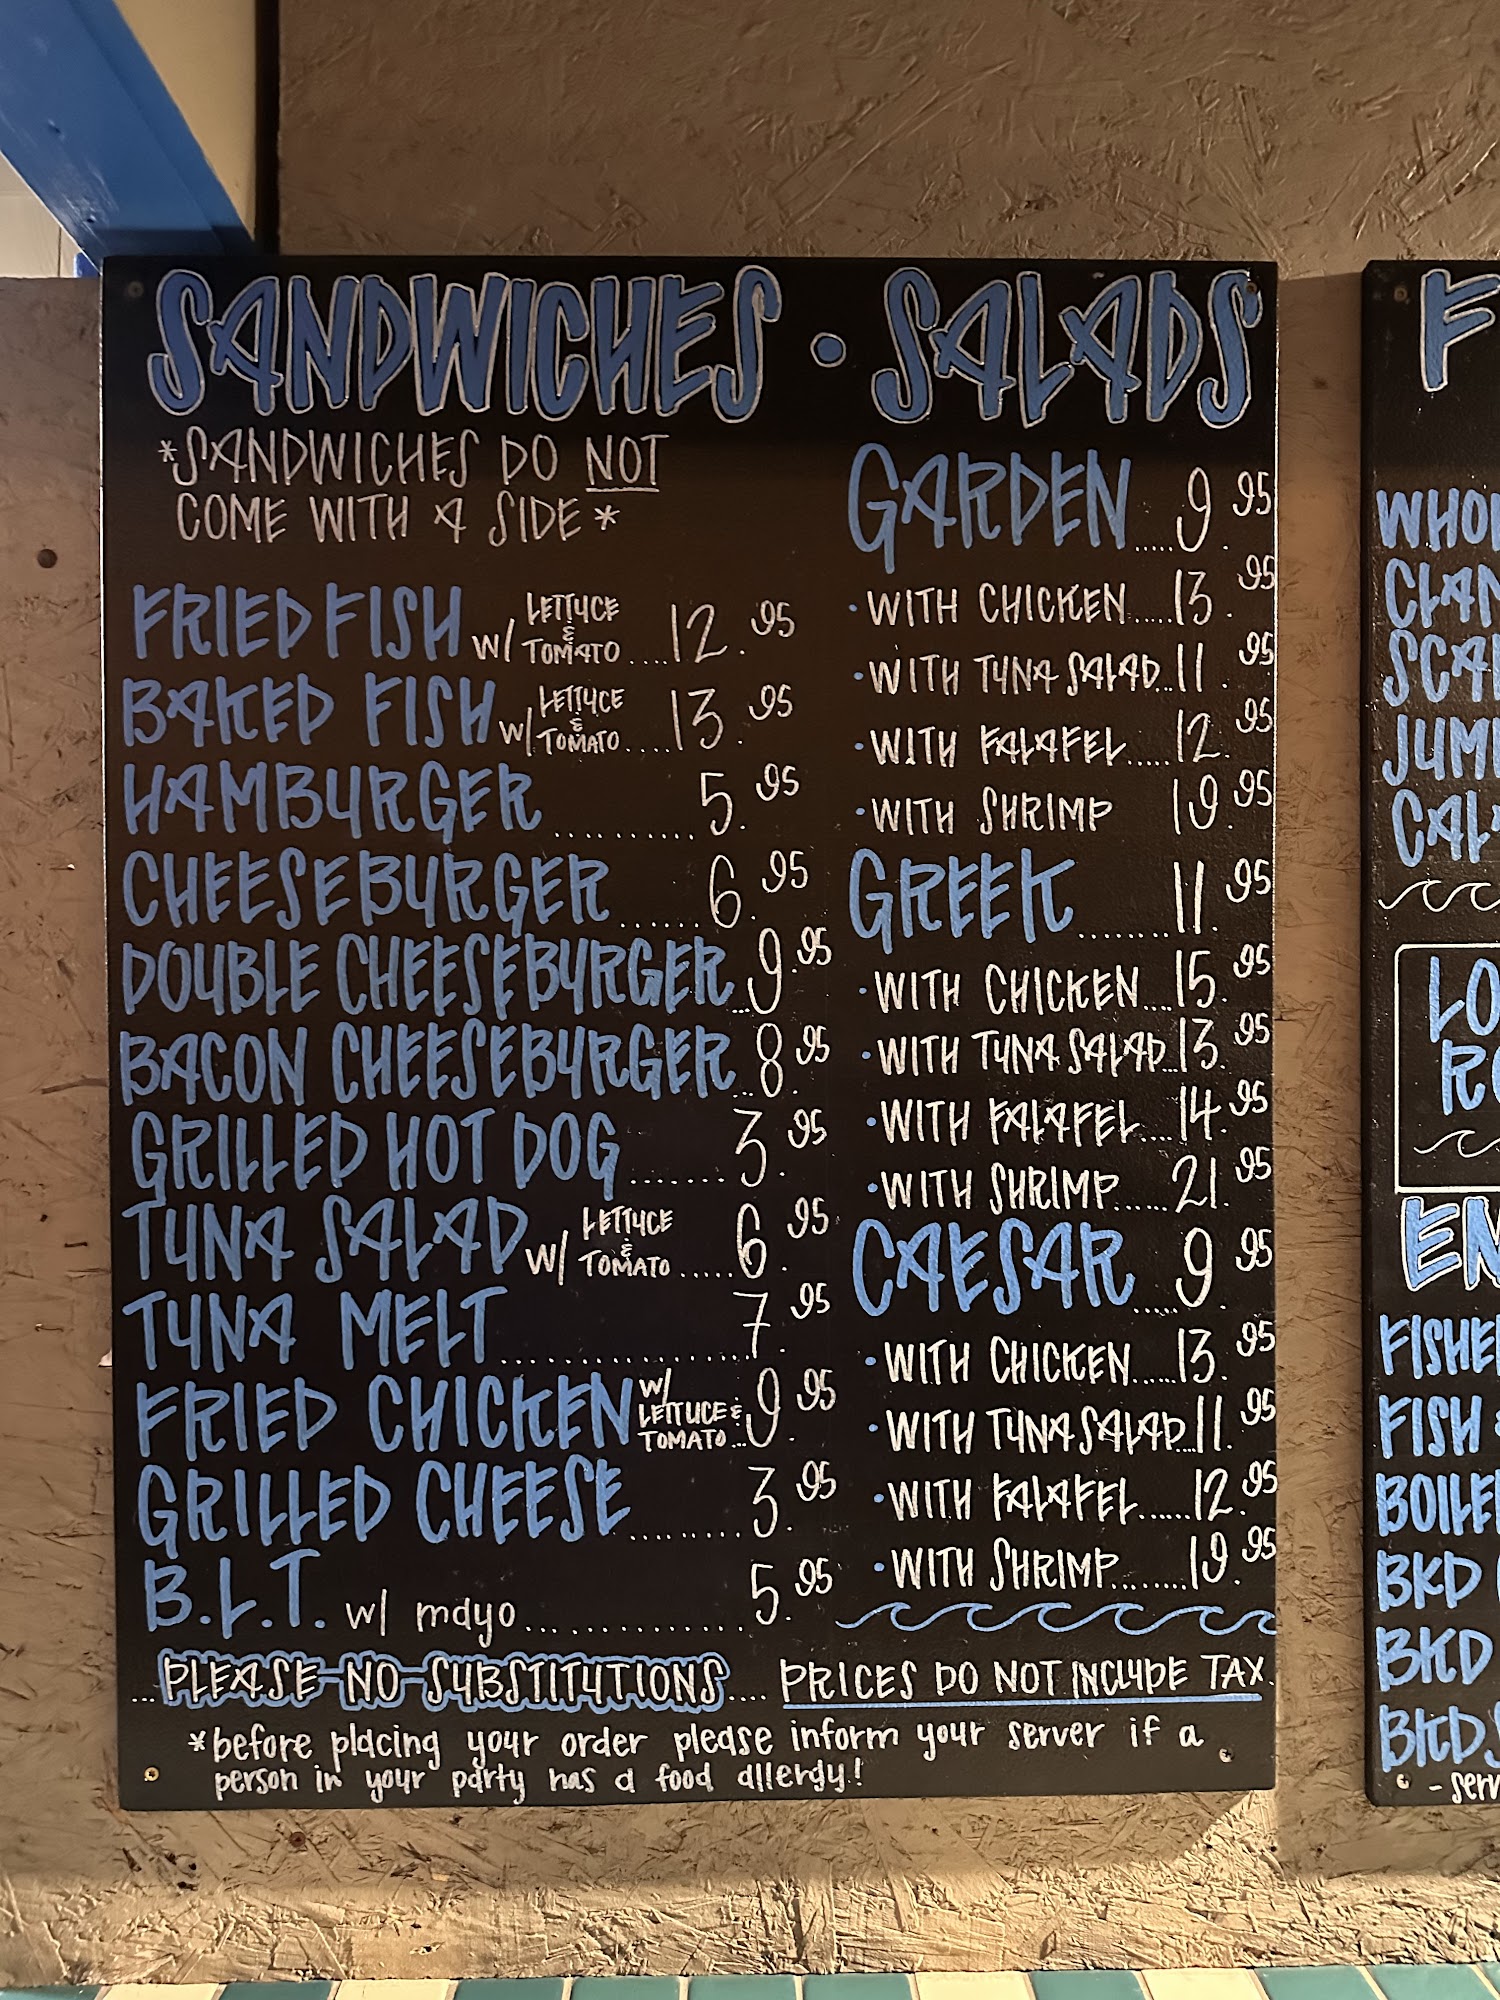 SANDWICHES • SALADS
*SANDWICHES DO NOT
COME WITH A SIDE*
FRIED FISH w/ LETTUCE & TOMATO....12.95
BAKED FISH w/ LETTUCE & TOMATO....13.95
HAMBURGER...........5.95
CHEESEBURGER......6.95
DOUBLE CHEESEBURGER...9.95
BACON CHEESEBURGER...8.95
GRILLED HOT DOG.......3.95
TUNA SALAD w/ LETTUCE & TOMATO.....6.95
TUNA MELT................7.95
FRIED CHICKEN w/ LETTUCE & TOMATO...9.95
GRILLED CHEESE........3.95
B.L.T. w/ mayo..............5.95
GARDEN.....9.95
•WITH CHICKEN.....13.95
•WITH TUNA SALAD...11.95
•WITH FALAFEL.....12.95
•WITH SHRIMP 19.95
GREEK........11.95
•WITH CHICKEN....15.95
•WITH TUNA SALAD...13.95
•WITH FALAFEL....14.95
•WITH SHRIMP......21.95
CAESAR.....9.95
•WITH CHICKEN.....13.95
•WITH TUNA SALAD...11.95
•WITH FALAFEL......12.95
•WITH SHRIMP........19.95
...PLEASE-NO-SUBSTITUTIONS.... PRICES DO NOT INCLUDE TAX.
*before placing your order please inform your server if a
person in your party has a food allergy!
FISH